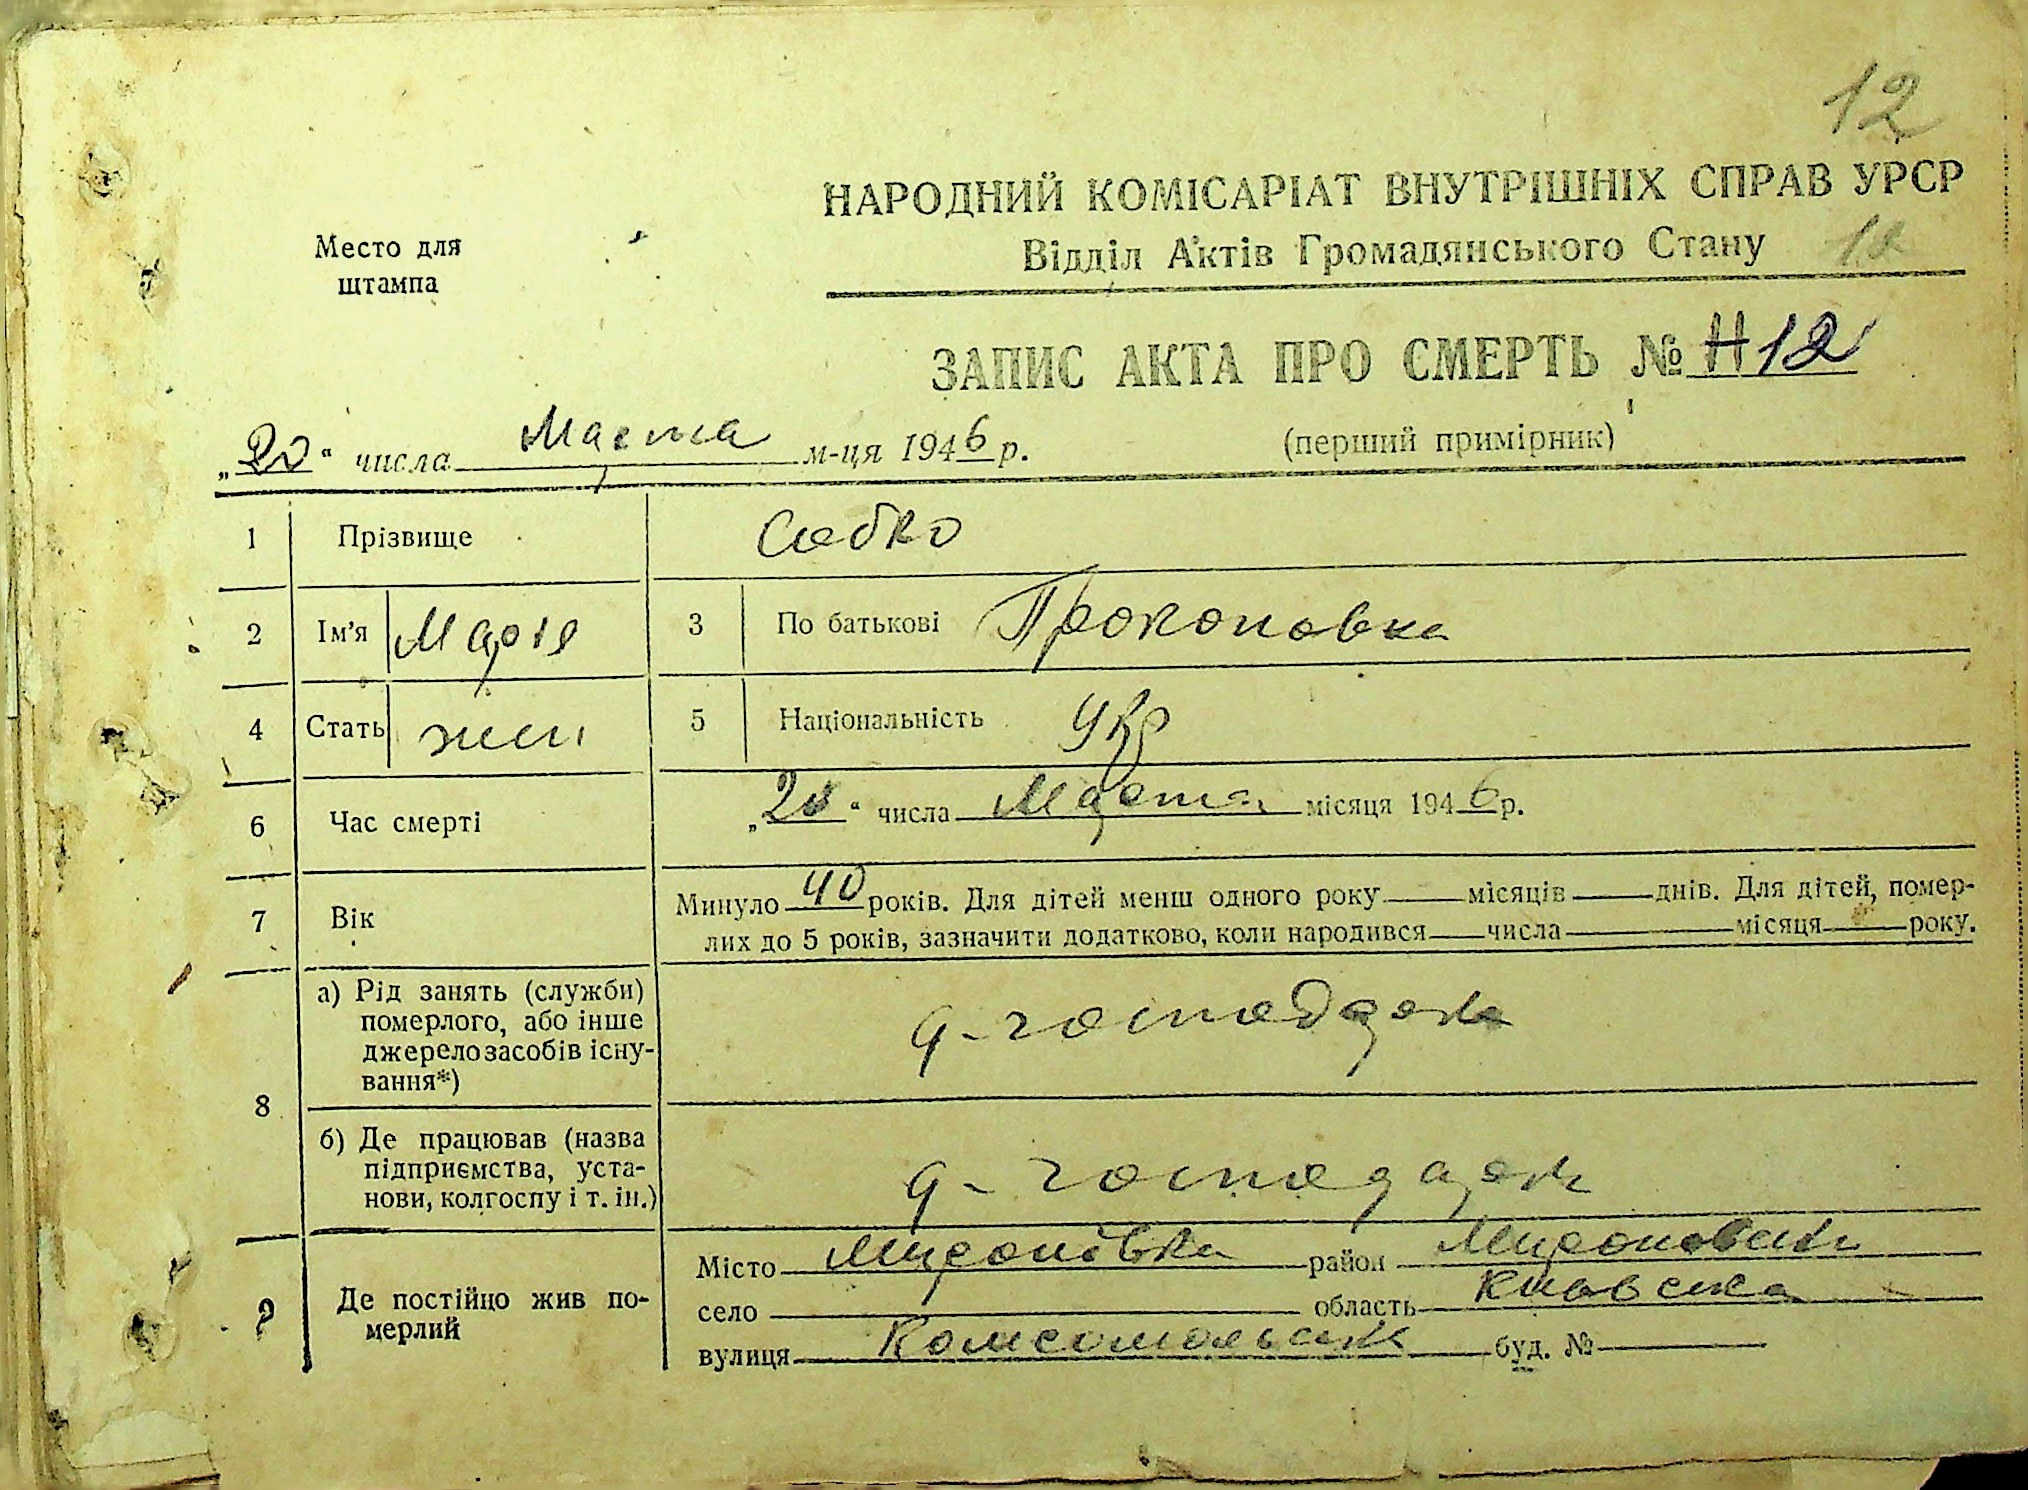 12
НАРОДНИЙ КОМІСАРІАТ ВНУТРІШНІХ СПРАВ УРСР
Відділ Актів Громадянського Стану
Место для
штампа
ЗАПИС АКТА ПРО СМЕРТЬ № 12
„20“ числа Марта м-ця 1946 р.
(перший примірник)
1 Прізвище Сабко
2 Ім'я Марія 3 По батькові Прокоповна
4 Стать жін 5 Національність Укр
6 Час смерті „20“ числа Марта місяця 1946 р.
7 Вік Минуло 40 років. Для дітей менш одного року місяців днів. Для дітей, помер-
лих до 5 років, зазначити додатково, коли народився числа місяця року.
8 а) Рід занять (служби)
померлого, або інше
джерело засобів існу-
вання*)
б) Де працював (назва
підприємства, уста-
нови, колгоспу і т. ін.)
9 Де постійно жив по-
мерлий
Місто Миронівка район
село область Київська
вулиця буд. №